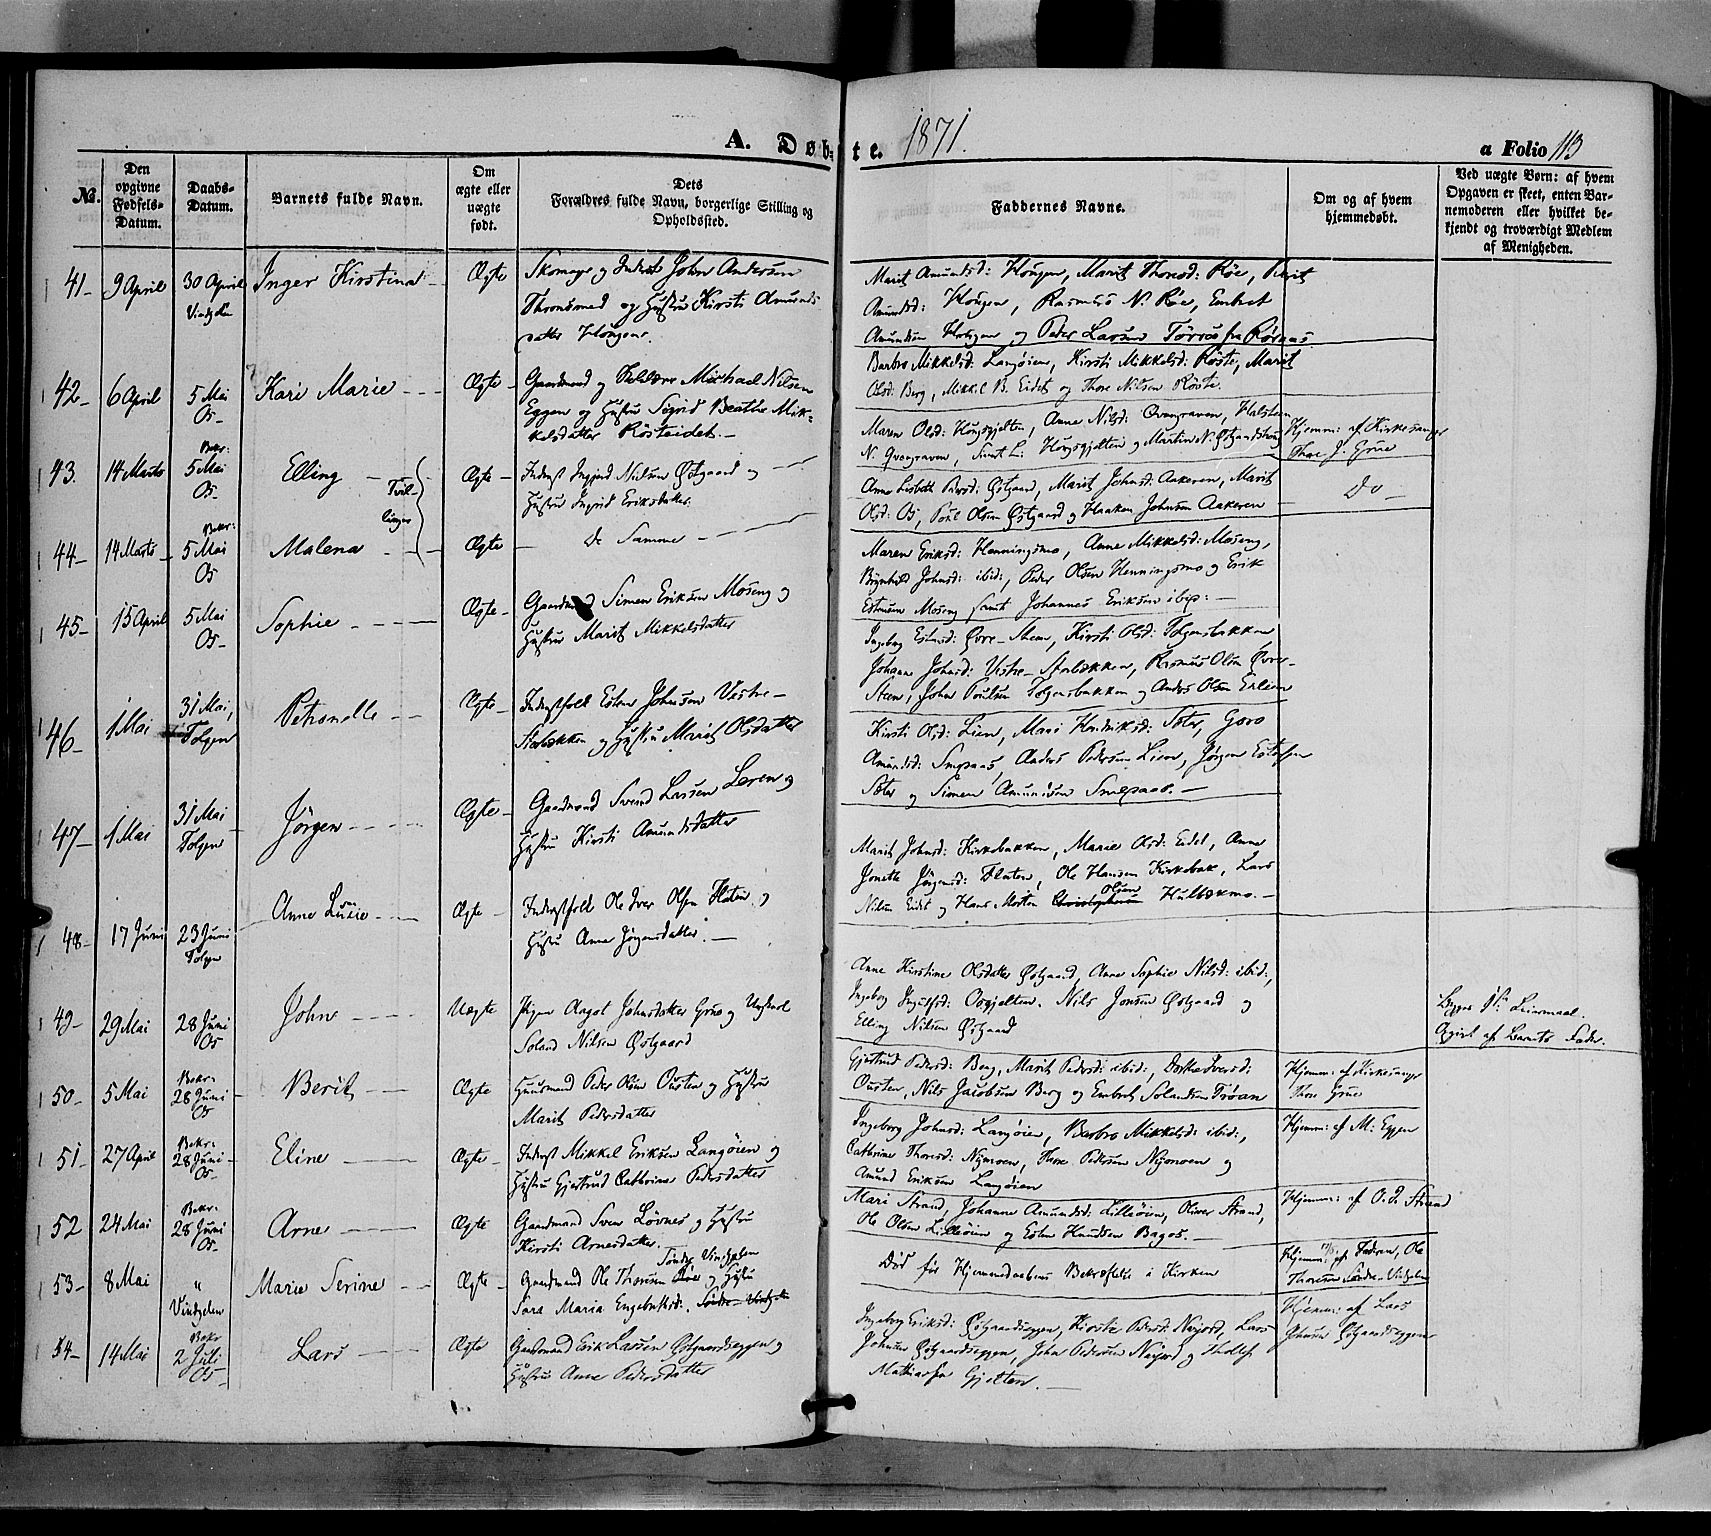 A. Døb- te. 1871.
a Folio 113
№.
Den opgivne Fødsels-Datum.
Daabs-Datum.
Barnets fulde Navn.
Om ægte eller uægte født.
Dets Forældres fulde Navn, borgerlige Stilling og Opholdssted.
Faddernes Navne.
Om og af hvem hjemmedøbt.
Ved uægte Børn: af hvem Opgaven er skeet, enten Bar-nemoderen eller hvilket be-kjendt og troværdigt Medlem af Menigheden.
41- 9 April 30 April Inger Kirstina - Ægte Skomager og Inderst John Andersen
Vindzelen
og Hustru Kirsti Amunds
datter Hougen.
Marit Amundsd: Hougen, Marit Thoresd: Røe, Berit
Amundsd: Hougen, Rasmus N. Røe, Embret
Amundsen Hougen og Peder Larsen fra Røraas
42- 6 April 5 Mai Kari Marie - - - Ægte - Gaardmand og Michael Nilsen
Os-
Eggen og Hustru Sigrid Beathe Mik-
kelsdatter Røsteidet. -
Barbro Mikkelsd: Langøien, Kirsti Mikkelsd: Røste, Marit
Olsd: Berg, Mikkel B. Eidet og Thore Nilsen Røste.
43. 14 Marts Bekr: 5 Mai Elling - Tvil- Ægte - Inderst Ingbrigt Nielsen Østgaard og
Os-
linger
Hustru Ingrid Eriksdatter.
Maren Olsd: Hougsgjelten, Anne Nilsd: Qvængraven, Halsteen
N. Qvængraven, Simt L. Hougsgjelten og Martin N. Østgaardstrøa
Hjemm: af Kirkesanger
Thore J. Grue
44- 14 Marts - Bekr: 5 Mai Malena - - - Ægte - De Samme -
Os
Anne Lisbeth Persd: Østgaard, Marit Johnsd: Aakeren, Marit
Olsd: Os, Povl Olsen Østgaard og Haaken Johnsen Aakeren
Do -
45- 15 April 5 Mai Sophie - - - Ægte - Gaardmand Simen Eriksen Moseng og
Os-
Hustru Marit Mikkelsdatter
Maren Eriksd: Henningsmo, Anne Mikkelsd: Moseng,
Brynhild Johnsd: ibid:, Peder Olsen Henningsmo og Erik
Estensen Moseng samt Johannes Eriksen ibid: -
46- 1 Mai 31 Mai, Petronelle - - Ægte - Inderstfolk Esten Johnsen Vestre-
Tolgen
Starbækken og Hustru Marit Olsdatter
Ingebor Estensd: Øvre-Steen, Kirsti Olsd: Tolgensbakken
Johane Johnsd: Vestre-Starbækken, Rasmus Olsen Øvre-
Steen, John Poulsen Tolgensbakken og Anders Olsen Erlien
47- 1 Mai 31 Mai Jørgen - - - - Ægte - Gaardmand Svend Larsen Leren og
Tolgen
Hustru Kirsti Amundsdatter
Kirsti Olsd: Lien, Mari Hendriksd: Sæter, Goro
Amundsd: Smedaas, Anders Pedersen Lien, Jørgen Estensen
Sæter og Simen Amundsen Smedaas. -
48- 17 Juni 23 Juni Anne Lusie - - Ægte - Inderstfolk Ole Iver Olsen Flaten og
Tolgen
Hustru Anne Jørgensdatter. -
Marit Johnsd: Kirkebakken, Marie Olsd: Eidet, Anne
Jonette Jørgensd: Flaten, Ole Hansen Kirkebak, Lars
Nilsen Eidet og Hans Morten Olsen Hulbækmo. -
49- 29 Mai 28 Juni John - - - Uægte Pigen Aagot Johnsdatter Grue og Ungkarl
Os
Soland Nilsen Østgaard
Anne Kirstine Olsdatter Østgaard, Anne Sophie Nilsd: ibid:,
Ingebor Ingulfsd: Oosgjelten. Nils Jonsen Østgaard og
Elling Nilsen Østgaard
Begges 1ste Leiermaal.
Opgivet af Barnets Fader.
50- 5 Mai Bekr: 28 Juni - Berit - - Ægte Huusmand Peder Olsen Ousten og Hustru
Os
Marit Pedersdatter
Gjertrud Pedersd: Berg, Marit Pedersd: ibid:, Dorthe Iversd:
Ousten, Nils Jacobsen Berg og Embret Solandsen Trøan
Hjemm: af Kirkesanger
Thore Grue
51- 27 April Bekr: 28 Juni - Eline - - Ægte - Inderst Mikkel Eriksen Langøien og
Os-
Hustru Gjertrud Cathrine Pedersdatter
Ingeborg Johnsd: Langøien, Barbro Mikkelsd: ibid:,
Cathrine Thoresd: Nymoen, Thore Pedersen Nymoen og
Amund Eriksen Langøien
Hjemm: af M: Eggen
52 24 Mai Bekr. 28 Juni Arne - - - Ægte Gaardmand Sven Løvnes og Hustru
Os-
Kirsti Arnesdatter.
Mari Strand, Johanne Amundsd: Lilleøien, Oliver Strand,
Ole Olsen Lilleøien og Esten Knudsen Bagos. -
Hjemm: af O. P. Strand
53- 8 Mai " Marie Serine - - Ægte - Gaardmand Ole Thoresen Røe Søndre Vindzelen og Hustru
Vindzelen
Sara Maria Engebretsd: Søndre-Vindzelen
Død før Hjemmedaabens Bekræftelse i Kirken
Hjemm: af Faderen, Ole
Thoresen Søndre-Vindzelen
54- 14 Mai Bekr 2 Juli Lars - - Ægte Gaardmand Erik Larsen Østgaardseggen og
Os-
Hustru Anne Pedersdatter
Ingebor Eriksd: Østgaardseggen, Kirsti Pedersd: Nayjord, Lars
Johnsen Østgaardseggen, John Pedersen Nayjord og Thollef
Mathiasen Gjelten. -
Hjemm: af Lars
Johnsen Østgaardseggen